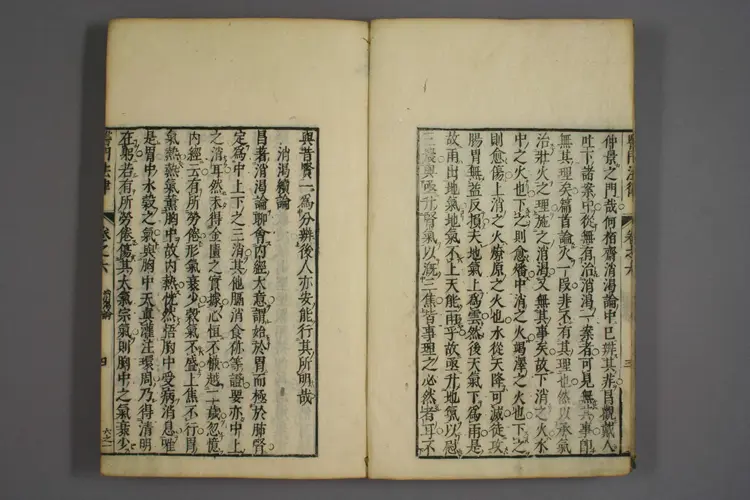 仲景之門哉何栢齋消渴論中已辨其非昌觀戴人
吐下諸案中從無有治消渴一案者可見無其事即
無其理矣篇首論火一段非不有其理也然以承氣
治壯火之理施之消渴又無其事矣故下消之火水
中之火也下之則愈燔中消之火竭澤之火也下之
則愈傷上消之火燎原之火也水從天降可滅徒攻
腸胃無益反損夫地氣上爲雲然後天氣下爲雨是
故雨出地氣地氣不上天能雨乎故亟升地氣以慰
三農與亟升腎氣以溉三焦皆事理之必然者耳不
與昔賢一爲分辨後人亦安能行其所明哉
消渴續論
昌著消渴論聊會內經大意謂始於胃而極於肺腎
定爲中上下之三消其他膈消食㑊等證要亦中上
之消耳然未得金匱之實據心恒不慊越二十歲忽憶
內經云有所勞倦形氣衰少穀氣不盛上焦不行胃
氣熱熱氣薰胸中故內熱恍然悟胸中受病消息唯
是胃中水穀之氣與胸中天眞灌注環周乃得清明
在躬若有所勞倦傷其大氣宗氣則胸中之氣衰少
醫門法律
卷之六
消渴論
四
六之一
三